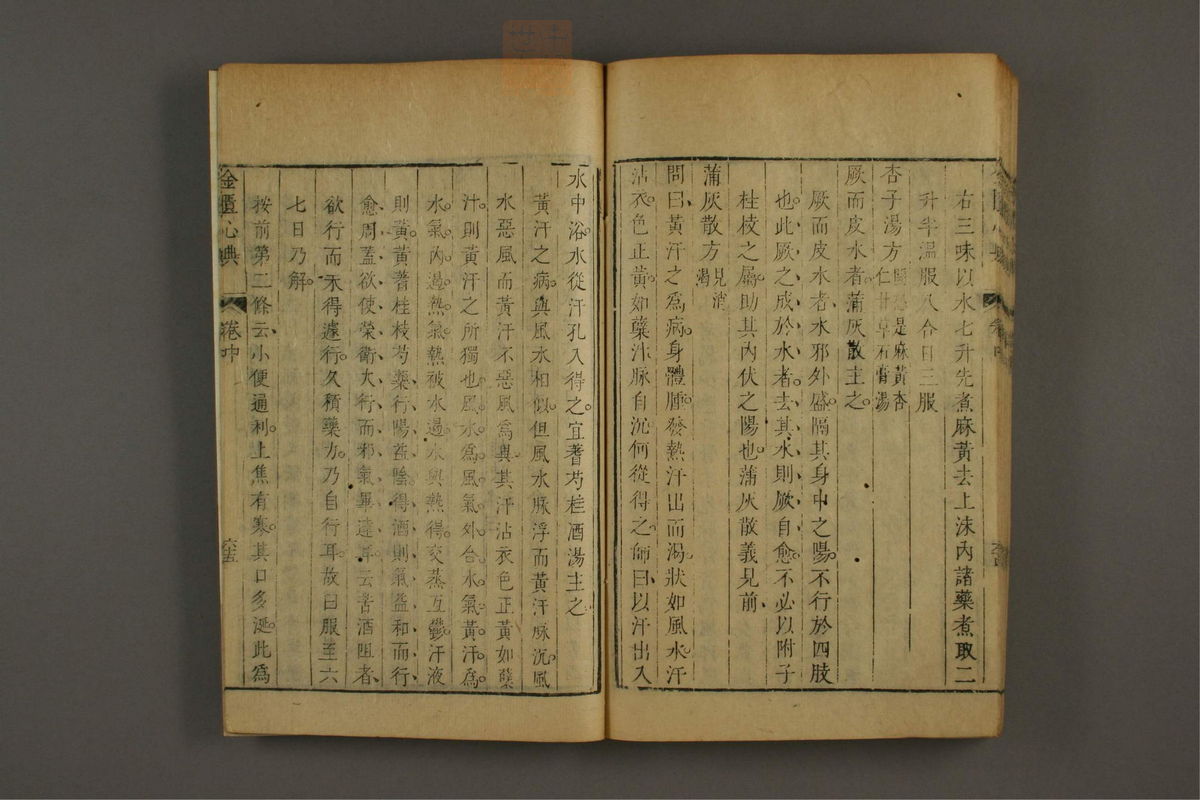 右三味以水七升先煮麻黃去上沫內諸藥煮取二
升半溫服八合日三服
杏子湯方
是麻黃杏
仁甘草石膏湯
厥而皮水者蒲灰散主之
厥而皮水者水邪外盛隔其身中之陽不行於四肢
也此厥之成於水者去其水則厥自愈不必以附子
桂枝之屬助其內伏之陽也蒲灰散義見前
蒲灰散方
見消
渴
問曰黃汗之為病身體腫發熱汗出而渴狀如風水汗
沾衣色正黃如蘗汁脉自沉何從得之師曰以汗出入
水中浴水從汗孔入得之宜耆芍桂酒湯主之
黃汗之病與風水相似但風水脉浮而黃汗脉沉風
水惡風而黃汗不惡風為異其汗沾衣色正黃如蘗
汁則黃汗之所獨也風水為風氣外合水氣黃汗為
水氣內遏熱氣熱被水遏水與熱得交蒸互鬱汗液
則黃黃蓍桂枝芍藥行陽益陰得酒則氣益和而行
愈周蓋欲使榮衛大行而邪氣畢達耳云苦酒阻者
欲行而未得遽行久積藥力乃自行耳故曰服至六
七日乃解
按前第二條云小便通利上焦有寒其口多涎此為
金匱心典
卷中
六五